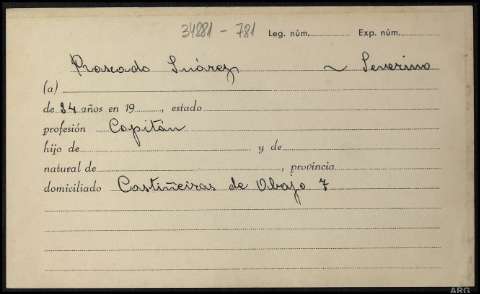 34881 - 781 Leg. núm. Exp. núm.
Rosado Suárez ~ Severino
(a)
de 34 años en 19 , estado
profesión Capitán
hijo de y de
natural de , provincia
domiciliado Castiñeiras de Abajo 7
ARG